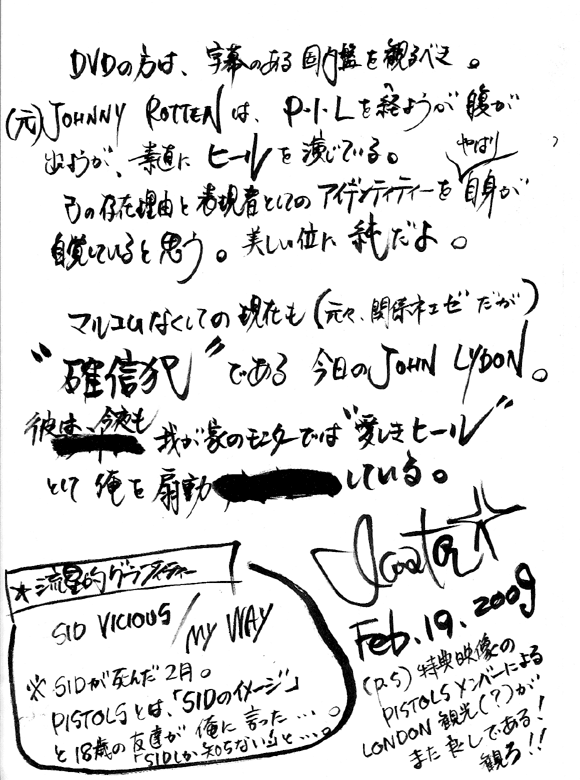 DVDの方は、字幕のある国内盤を観るべき。
(元)JOHNNY ROTTENは、P.I.Lを経ようが腹が
出ようが、素直にヒールを演じている。
やはり
己の存在理由と表現者としてのアイデンティティーを自身が
自覚していると思う。美しい位に純だよ。
マルコムなくしての現在も(元々、関係ネェゼだが)
"確信犯"である今日のJOHN LYDON。
彼は、今夜も我が家のモニターでは"愛しきヒール"
として俺を扇動している。
Feb.19.2009
(P.S)特典映像の
PISTOLSメンバーによる
LONDON観光(?)が
また良しである!
観ろ!!
*流星的グラフィティー
SID VICIOUS/MY WAY
※SIDが死んだ2月。
PISTOLSとは、「SIDのイメージ」
と18歳の友達が俺に言った…。
「SIDしか知らない」と…。